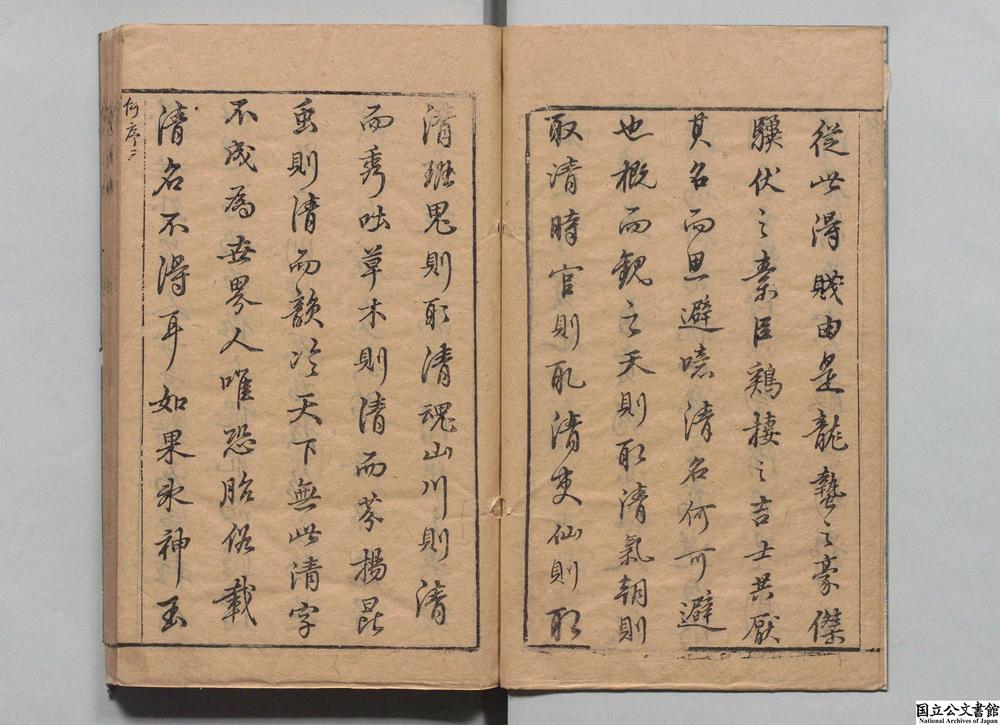 從此得賤由是龍蟄之豪傑
驥伏之棄臣鷄棲之吉士共厭
其名而思避噫清名何可避
也概而觀之天則取清氣朝則
取清時官則取清吏仙則取
清班鬼則取清魂山川則清
而秀咄草木則清而芬揚昆
虫則清而韻冷天下無此清字
不成為世界人唯恐胎俗載
清名不得耳如果氷神玉
何序三
国立公文書館
National Archives of Japan